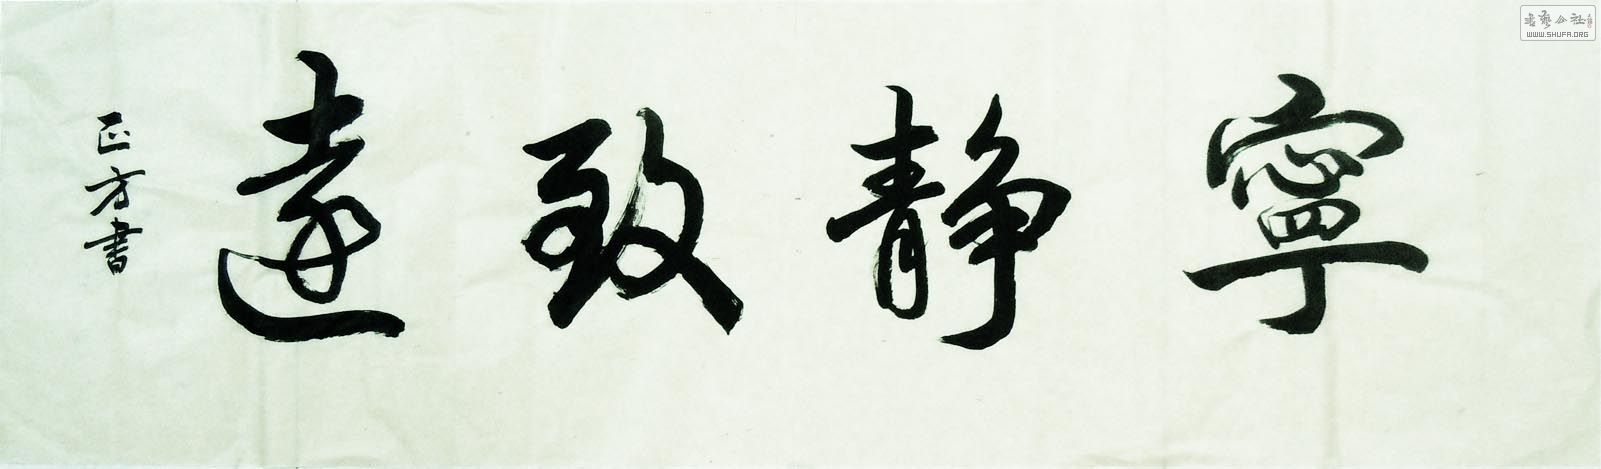 寧静致遠
正方書
書藝公社
WWW.SHUFA.ORG